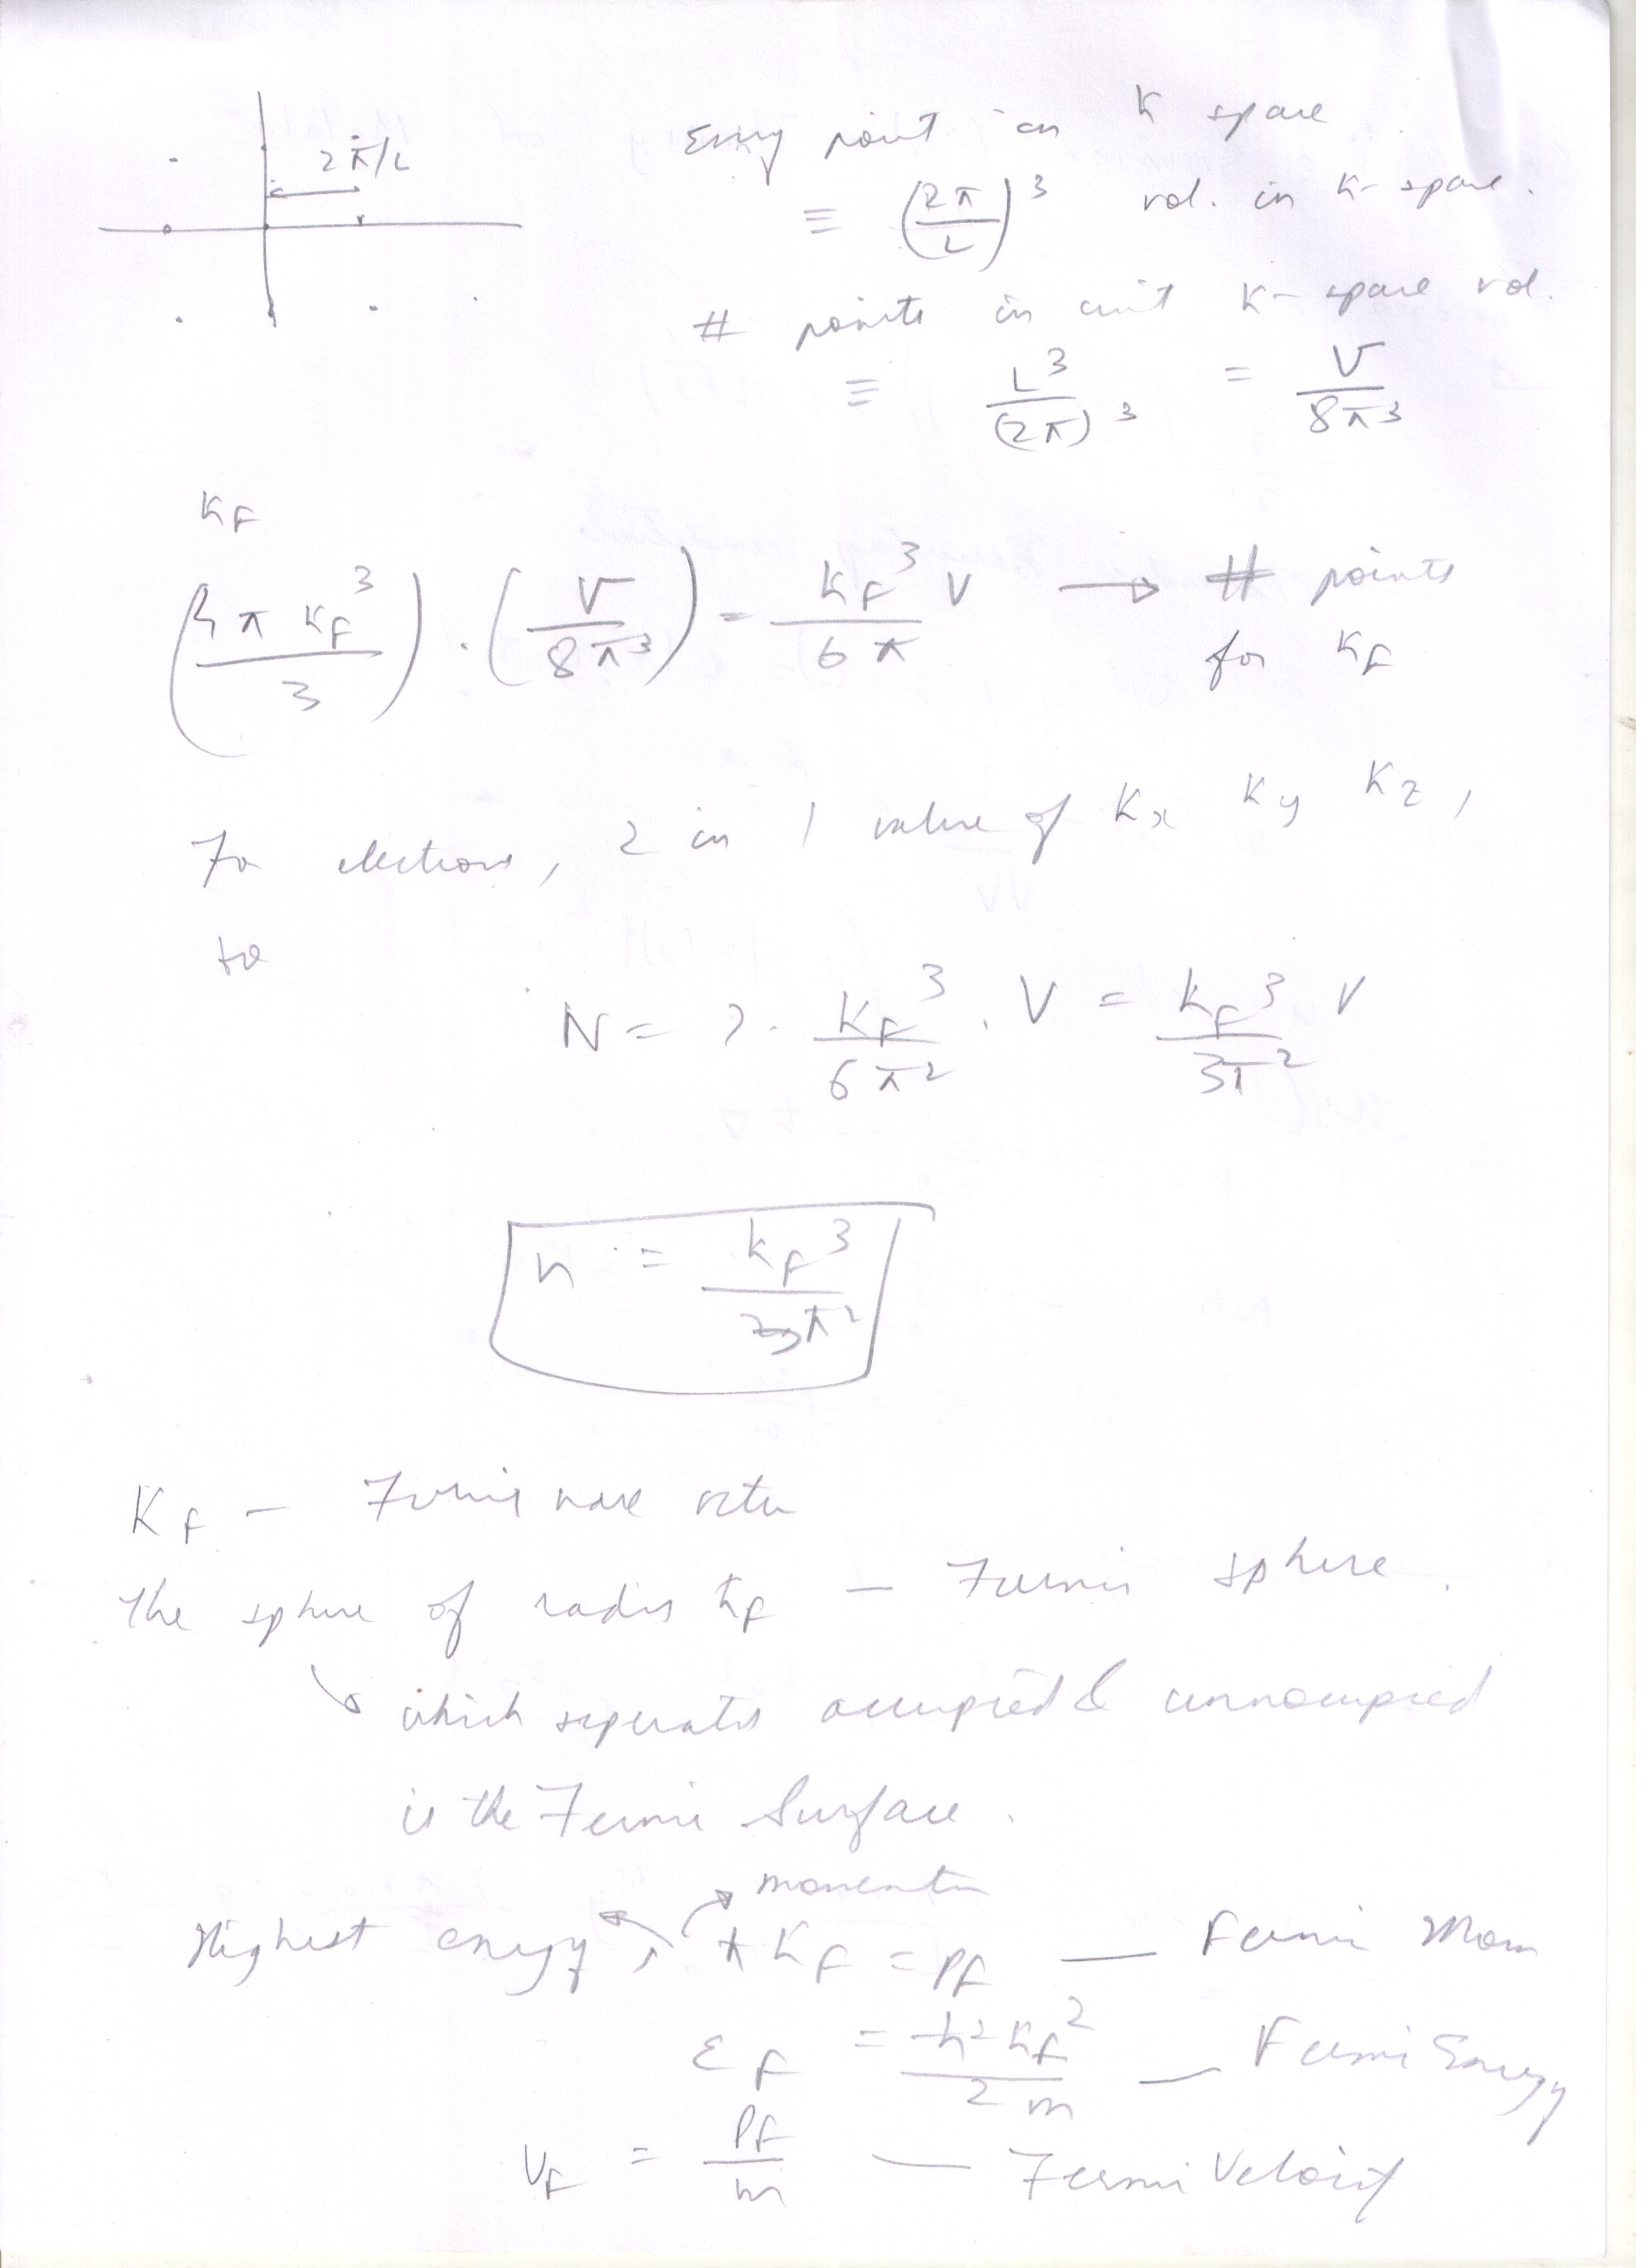 2π/L
Every point in K space
≡ (2π/L)³ vol. in K-space.
# points in unit K-space vol.
≡ L³/(2π)³ = V/8π³
K_F
(4π K_F³/3) · (V/8π³) = K_F³ V/6π → # points
for K_F
For electrons, 2 in 1 value of Kx Ky Kz,
to
N = 2 · K_F³/6π² · V = k_F³/3π² V
n = k_F³/3π²
K_F – Fermi wave vector
The sphere of radius k_F — Fermi sphere.
which seperates occupied & unnocupied
is the Fermi Surface.
momentum
Highest energy, ħ K_F = p_F — Fermi Mom
ε_F = ħ² K_F²/2m — Fermi Energy
v_F = p_F/m — Fermi Velocity